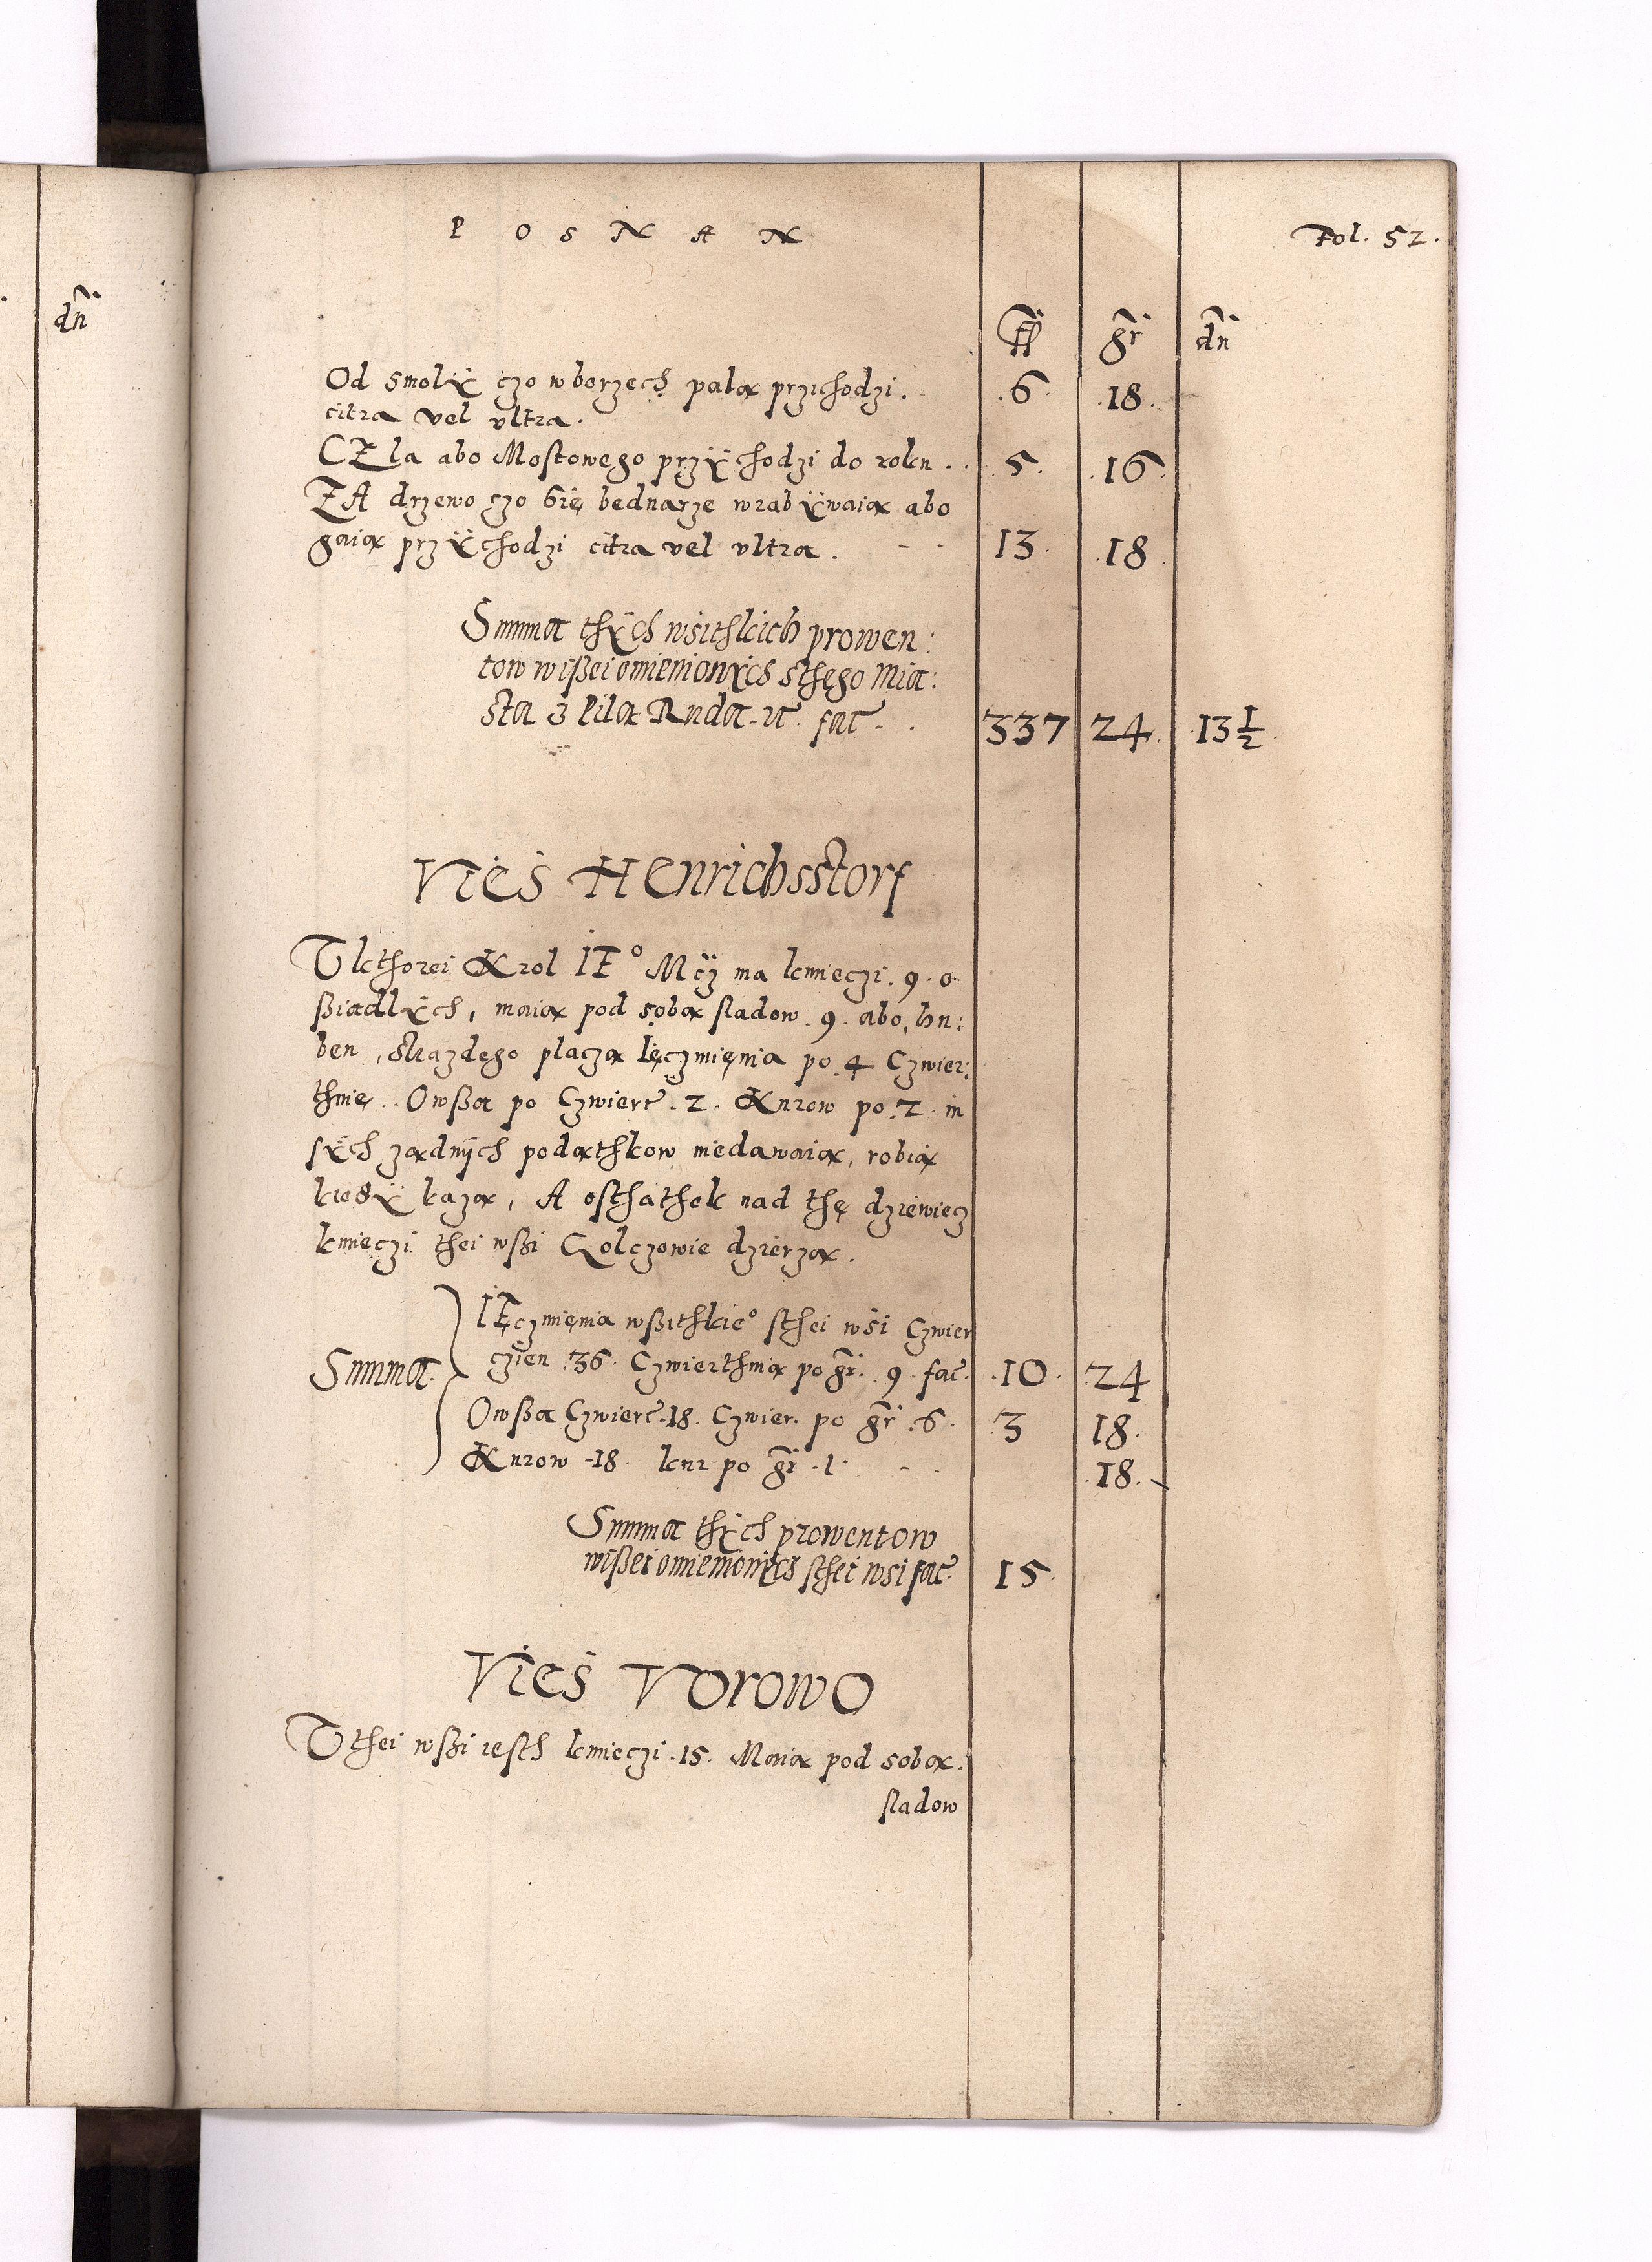 dn̄
P O S N A N
Fol. 52.
fl gr̄ dn̄
Od smolÿ czo w borzech palą przichodzi. 6 18
citra vel vltra.
CZla abo Mostowego przÿchodzi do roku. 5 16
ZA drzewo czo się bednarze wrabÿwaią abo
gaią przÿchodzi citra vel vltra. 13 18
Summa thÿch wsithkich prowen:
tow wißei omienionÿch sthego Mia:
sta z Piłą Ruda ut fac̄ 337 24 13½
Vieś Henrichsstorf
V kthorei Krol IE° Mčÿ ma kmieczi 9 o
ßiadlÿch, maią pod sobą sladow 9 abo hu:
ben, skazdego placzą Ięczmięnia po 4 Czwier:
thnie. Owßa po Czwierc̄ 2. Kurow po 2 in
sÿch zadnÿch podathkow niedawaią, robią
kiedÿ kazą, A osthathek nad thę dziewiecz
kmieczi thei wßi Golczowie dzierzą.
IĘczmięnia wßithkie° sthei wśi Czwier
Summa czien 36 Czwierthnia po gr̄ 9 fac̄ 10 24
Owßa Czwierc̄ 18. Czwier. po gr̄ 6. 3 18
Kurow 18 kur po gr̄ 1. 18
Summa thÿch prowentow
wißei omienionÿch sthei wsi fac̄ 15
Vieś Vorowo
V thei wßi iesth kmieczi 15. Maią pod sobą
sladow